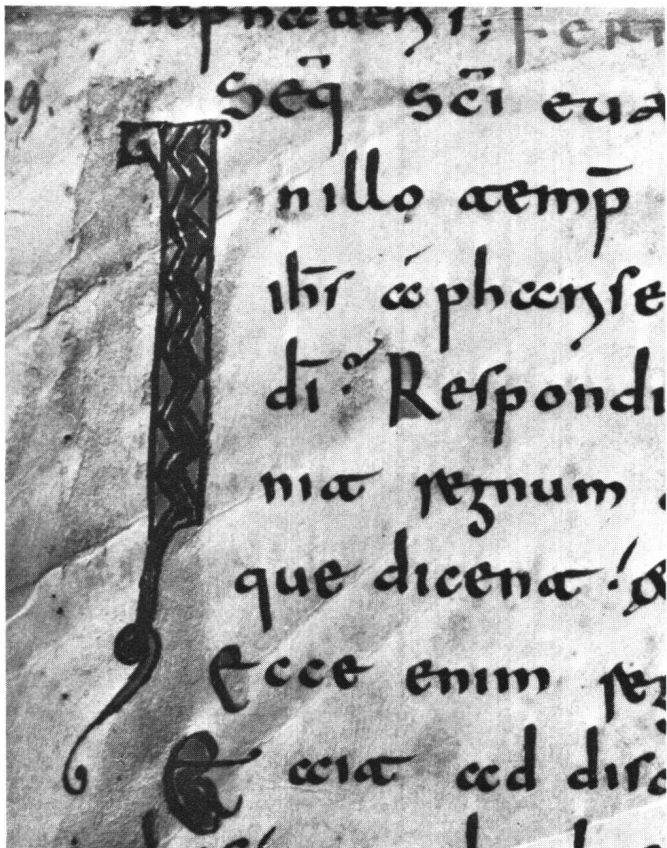 Feri
Seq̄ sc̄i eua
Inillo temp̄
ih̄s a pharise
dī. Respondi
nit regnum
que dicent
Ecce enim reg
Et ait ad disc